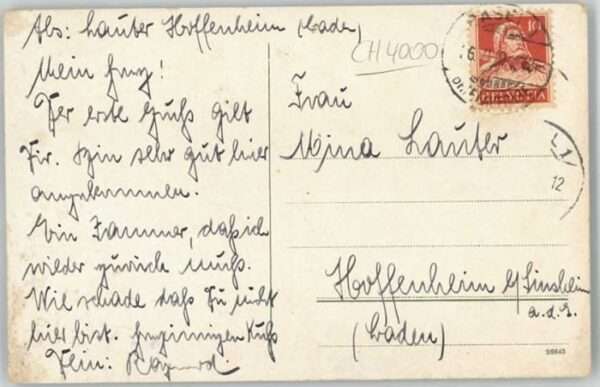 Abs: Lauter Hoffenheim (Baden)
Mein
Der erste Gruß gilt
Dir. Bin sehr gut hier
angekommen.
Ein Jammer, daß ich
wieder zurück muß.
Wie schade daß Du nicht
hier bist. Kuß
Dein:
CH 4000
Frau
Mina Lauter
Hoffenheim b/Sinsheim
a.d.E.
(Baden)
10
HELVETIA
12